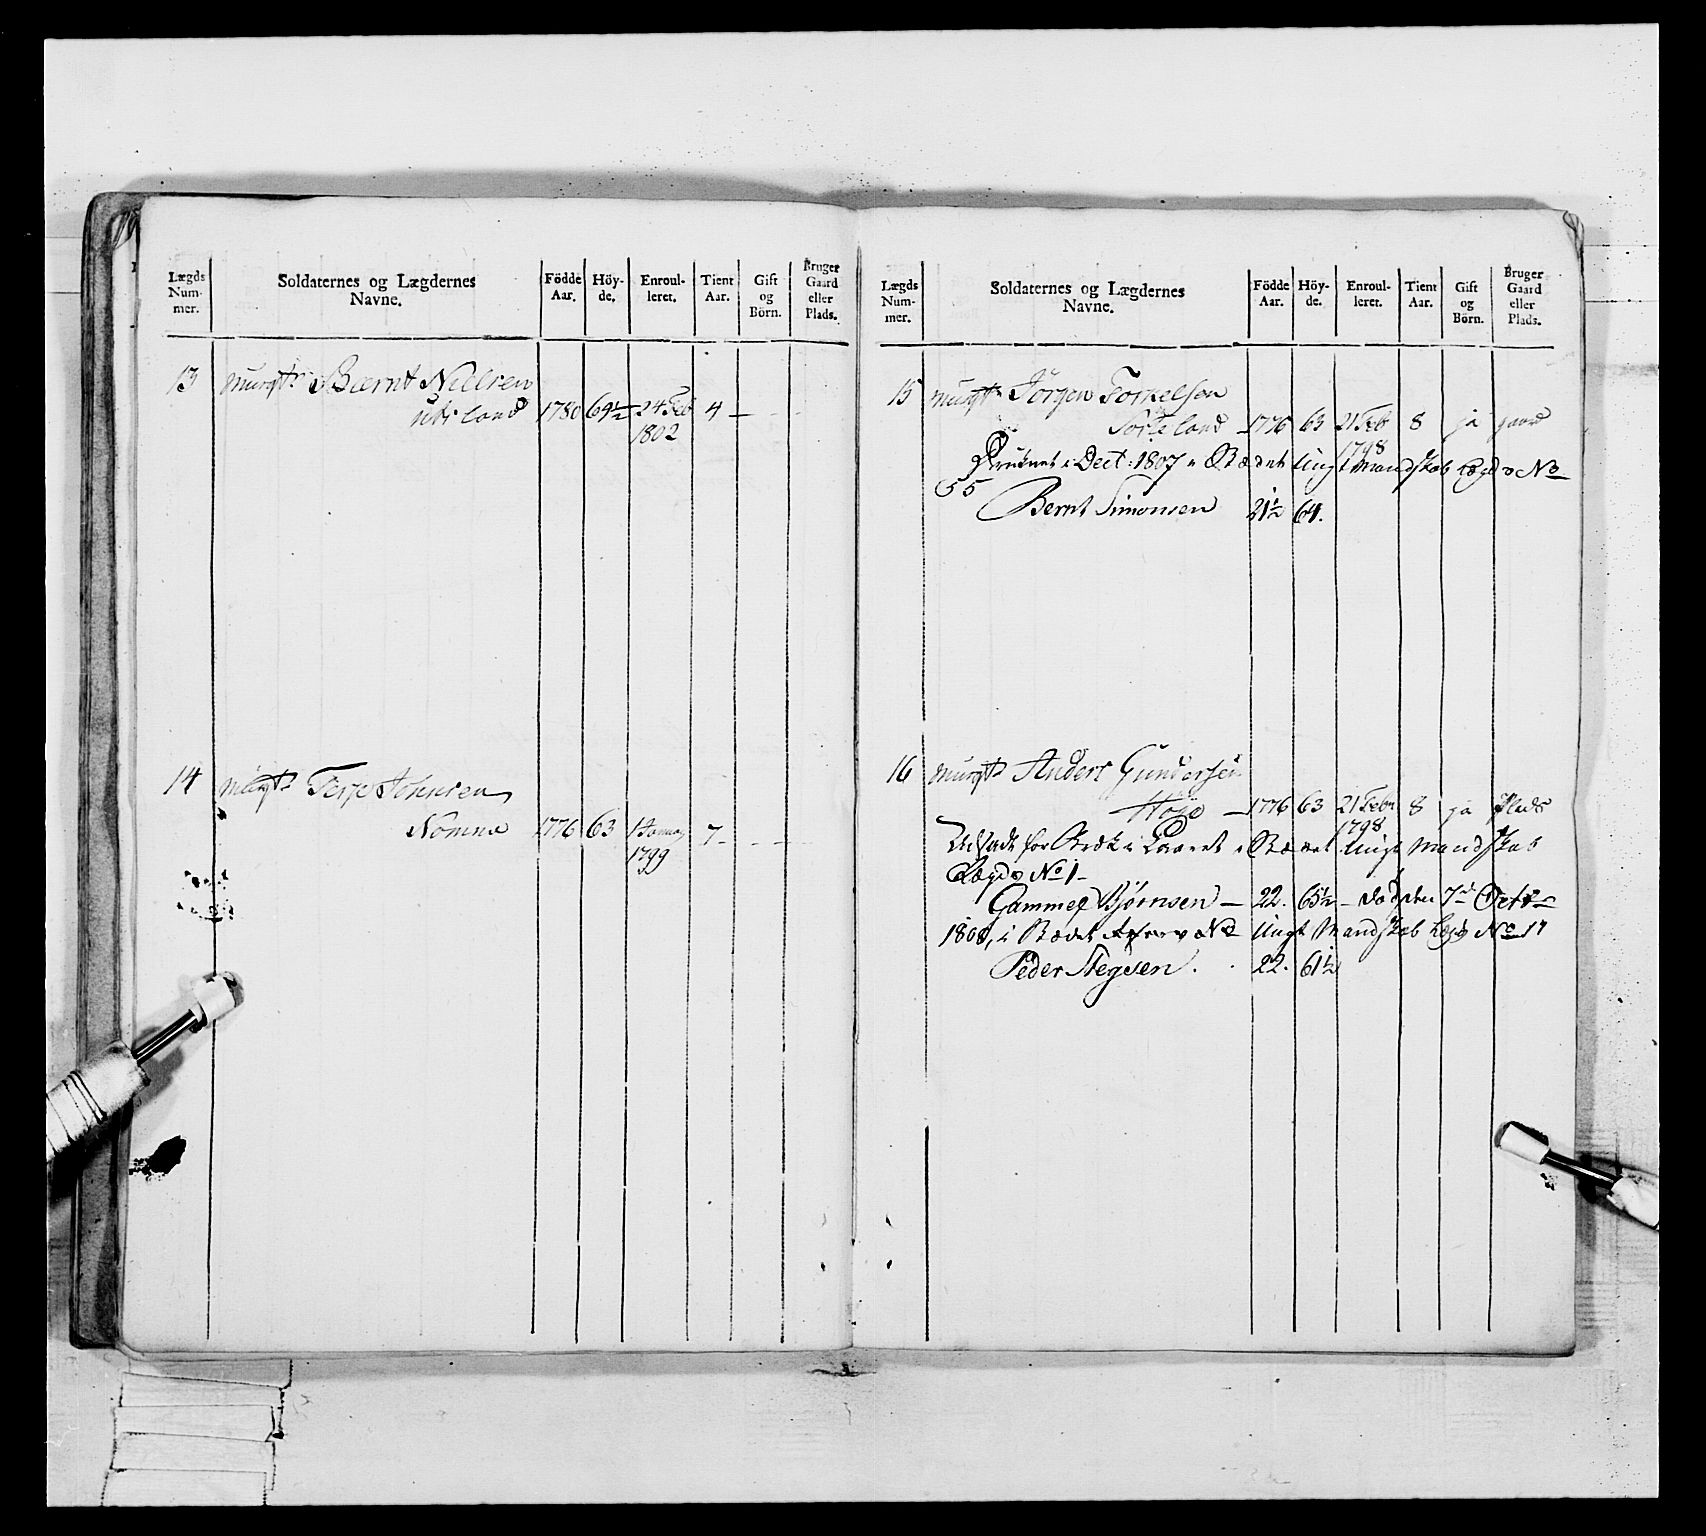 Lægds Num- mer. Soldaternes og Lægdernes Navne. Födde Aar. Höy- de. Enroul- leret. Tient Aar. Gift og Börn. Bruger Gaard eller Plads.
13 musqt Bærnt Nielsen
land 1780 69½ 24 Feb 1802 4 — - -
14 musqt Terje Johnsen
Nomme 1776 63 1 Januar 1799 7 - - -
Lægds Num- mer. Soldaternes og Lægdernes Navne. Födde Aar. Höy- de. Enroul- leret. Tient Aar. Gift og Börn. Bruger Gaard eller Plads.
15 musqt Jörgen Torkelsen
land 1776 63 21 Feb 1798 8 ja gaard
Druknet i Dect: 1807 Stædet Ungt Mandskab Lægds No
55
Bernt Simonsen 21½ 64.
16 musqt Anders Gundersen
1776 63 21 Febr 1798 8 ja Plads
Udsadt for Bræk i Stædet Ungt Mandskab
Lægds No 1-
Gammel Bjørnsen — 22. 65½ — død den 7de Octbr
1808, i Stædet Ungt Mandskab Lægds No 17
Peder 22. 61½